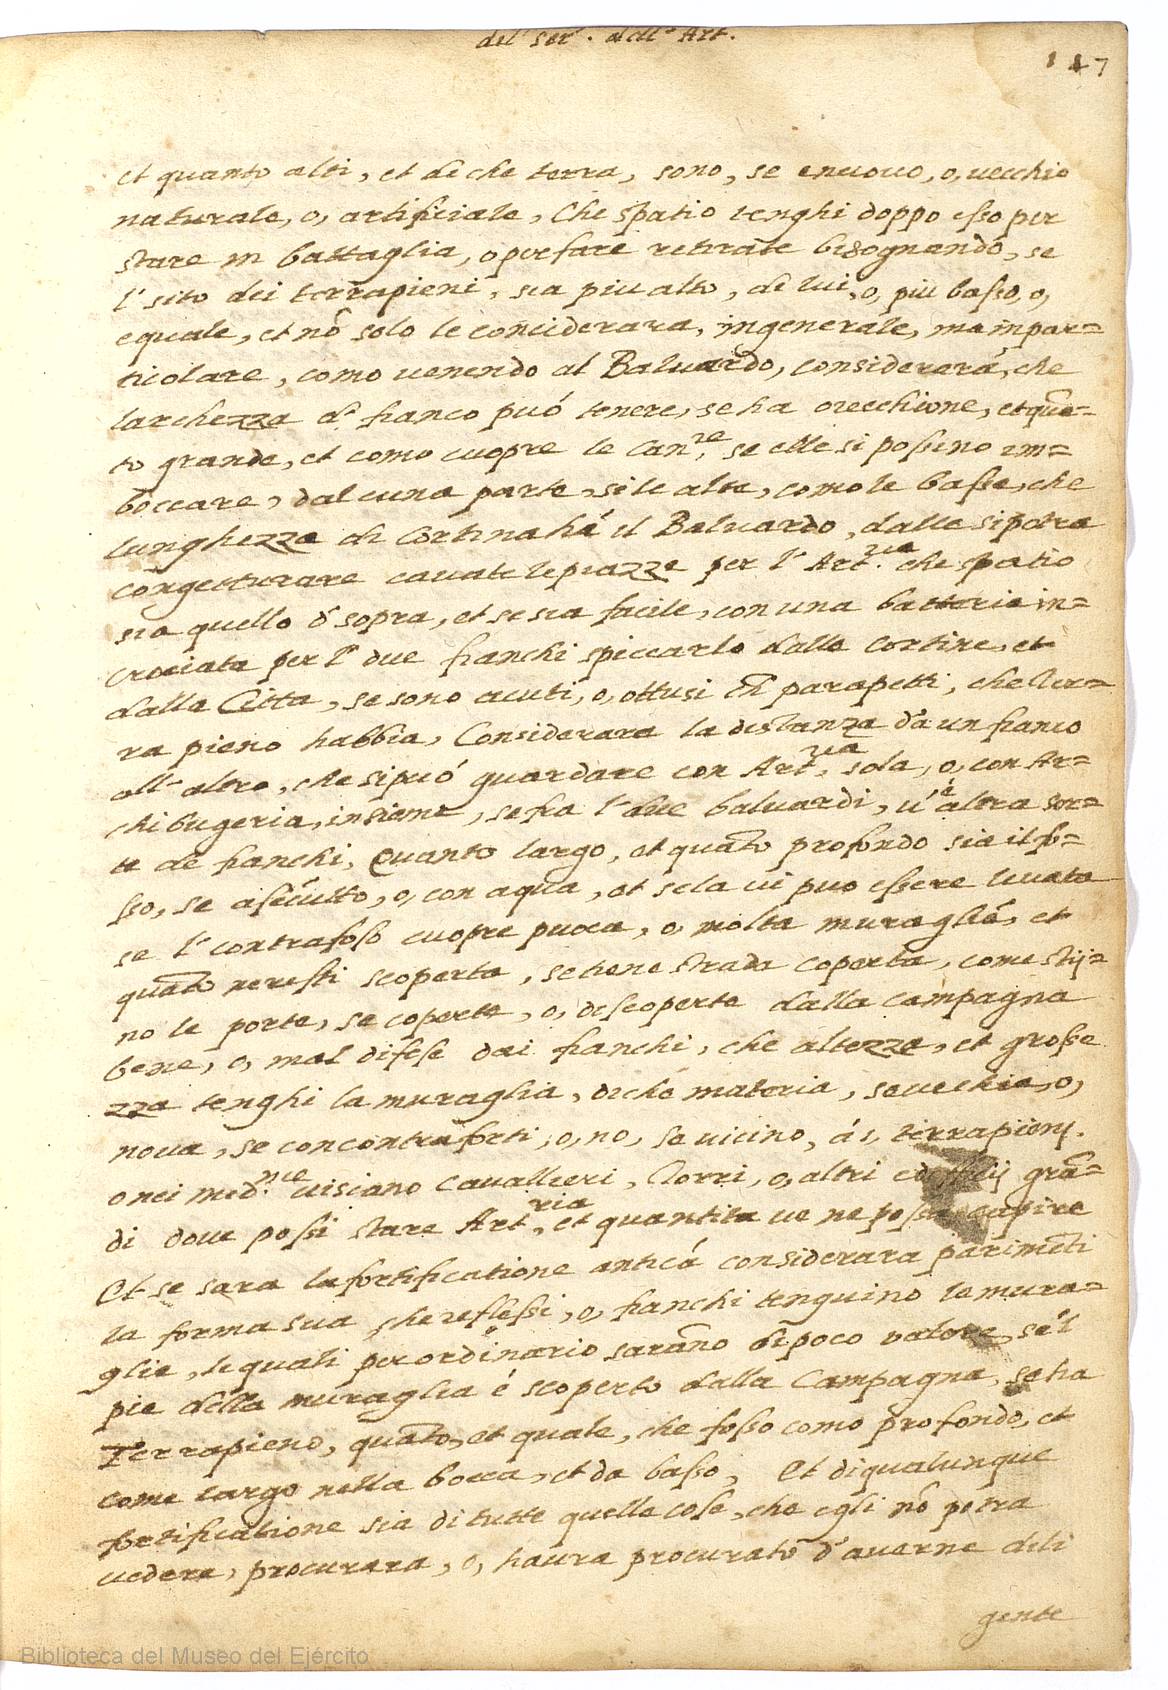 del ser.º dell'Art.
147
et quanto alti, et de che terra, sono, se e nuovo, o, uecchio
naturale, o, artificiale, Che spatio tenghi doppo esso per
stare in battaglia, o per fare retirate bisognando, se
l' sito dei terrapieni, sia piu alto, de lui, o, più basso, o,
equale, et nõ solo le conciderara, in generale, ma in par=
ticolare, como uenendo al Baluardo, considererá, che
larchezza d. fianco puó tenere, se ha orecchione, et quã=
to grande, et como cuopre le Can.re, se elle si possino im=
boccare, dalcuna parte, si le alte, como le basse, che
lunghezza di Cortina há il Baluardo, dalle si potra
congetturare cauate le piazze per l' Art.ria che spatio
sia quello d sopra, et se sia facile, con una batteria in=
crociata per l' due fianchi spiccarlo dalle Cortine, et
dalla Citta, se sono acuti, o, ottusi parapetti, che Ter=
ra pieno habbia, Considerara la distanza da un fianco
all'altro, che si può guardare con Art.ria sola, o, con Ar=
chibugeria, insieme, se fra l' due baluardi, u'è altra sor=
te de fianchi, Quanto largo, et quãto profondo sia il fo=
sso, se asciutto, o, con aqua, et se la ui puo essere leuata
se l' contrafosso cuopre pocca, o, molta muraglia, et
quãto ne resti scoperta, se tiene strada coperta, come stij=
no le porte, se coperte, o, descoperte dalla campagna
bene, o, mal difese dai fianchi, che altezza, et grosse
zza tenghi la muraglia, di che materia, se uechia, o,
noua, se con contraforti, o, no, se uicino, ás, terrapieni.
o nei med.mi ce uisiano Cavallieri, Torri, o, altri edifitij grã=
di doue possi stare Art.ria, et quantita ue ne possa capire
Et se sara la fortificatione anticá considerara parimẽti
la forma sua che reflessi, o, fianchi tenguino le mura=
glie, le quali per ordinario sarãno di poco valore, se'l
pie della muraglia é scoperto dalla Campagna, se ha
Terrapieno, quãto, et quale, che fosso como profondo, et
come largo nella bocca, et da basso, Et di qualunque
fortificatione sia di tutte quelle cose, che egli nõ potra
uedere, procurara, o, haura procurato d'auerne dili
gente
Biblioteca del Museo del Ejército